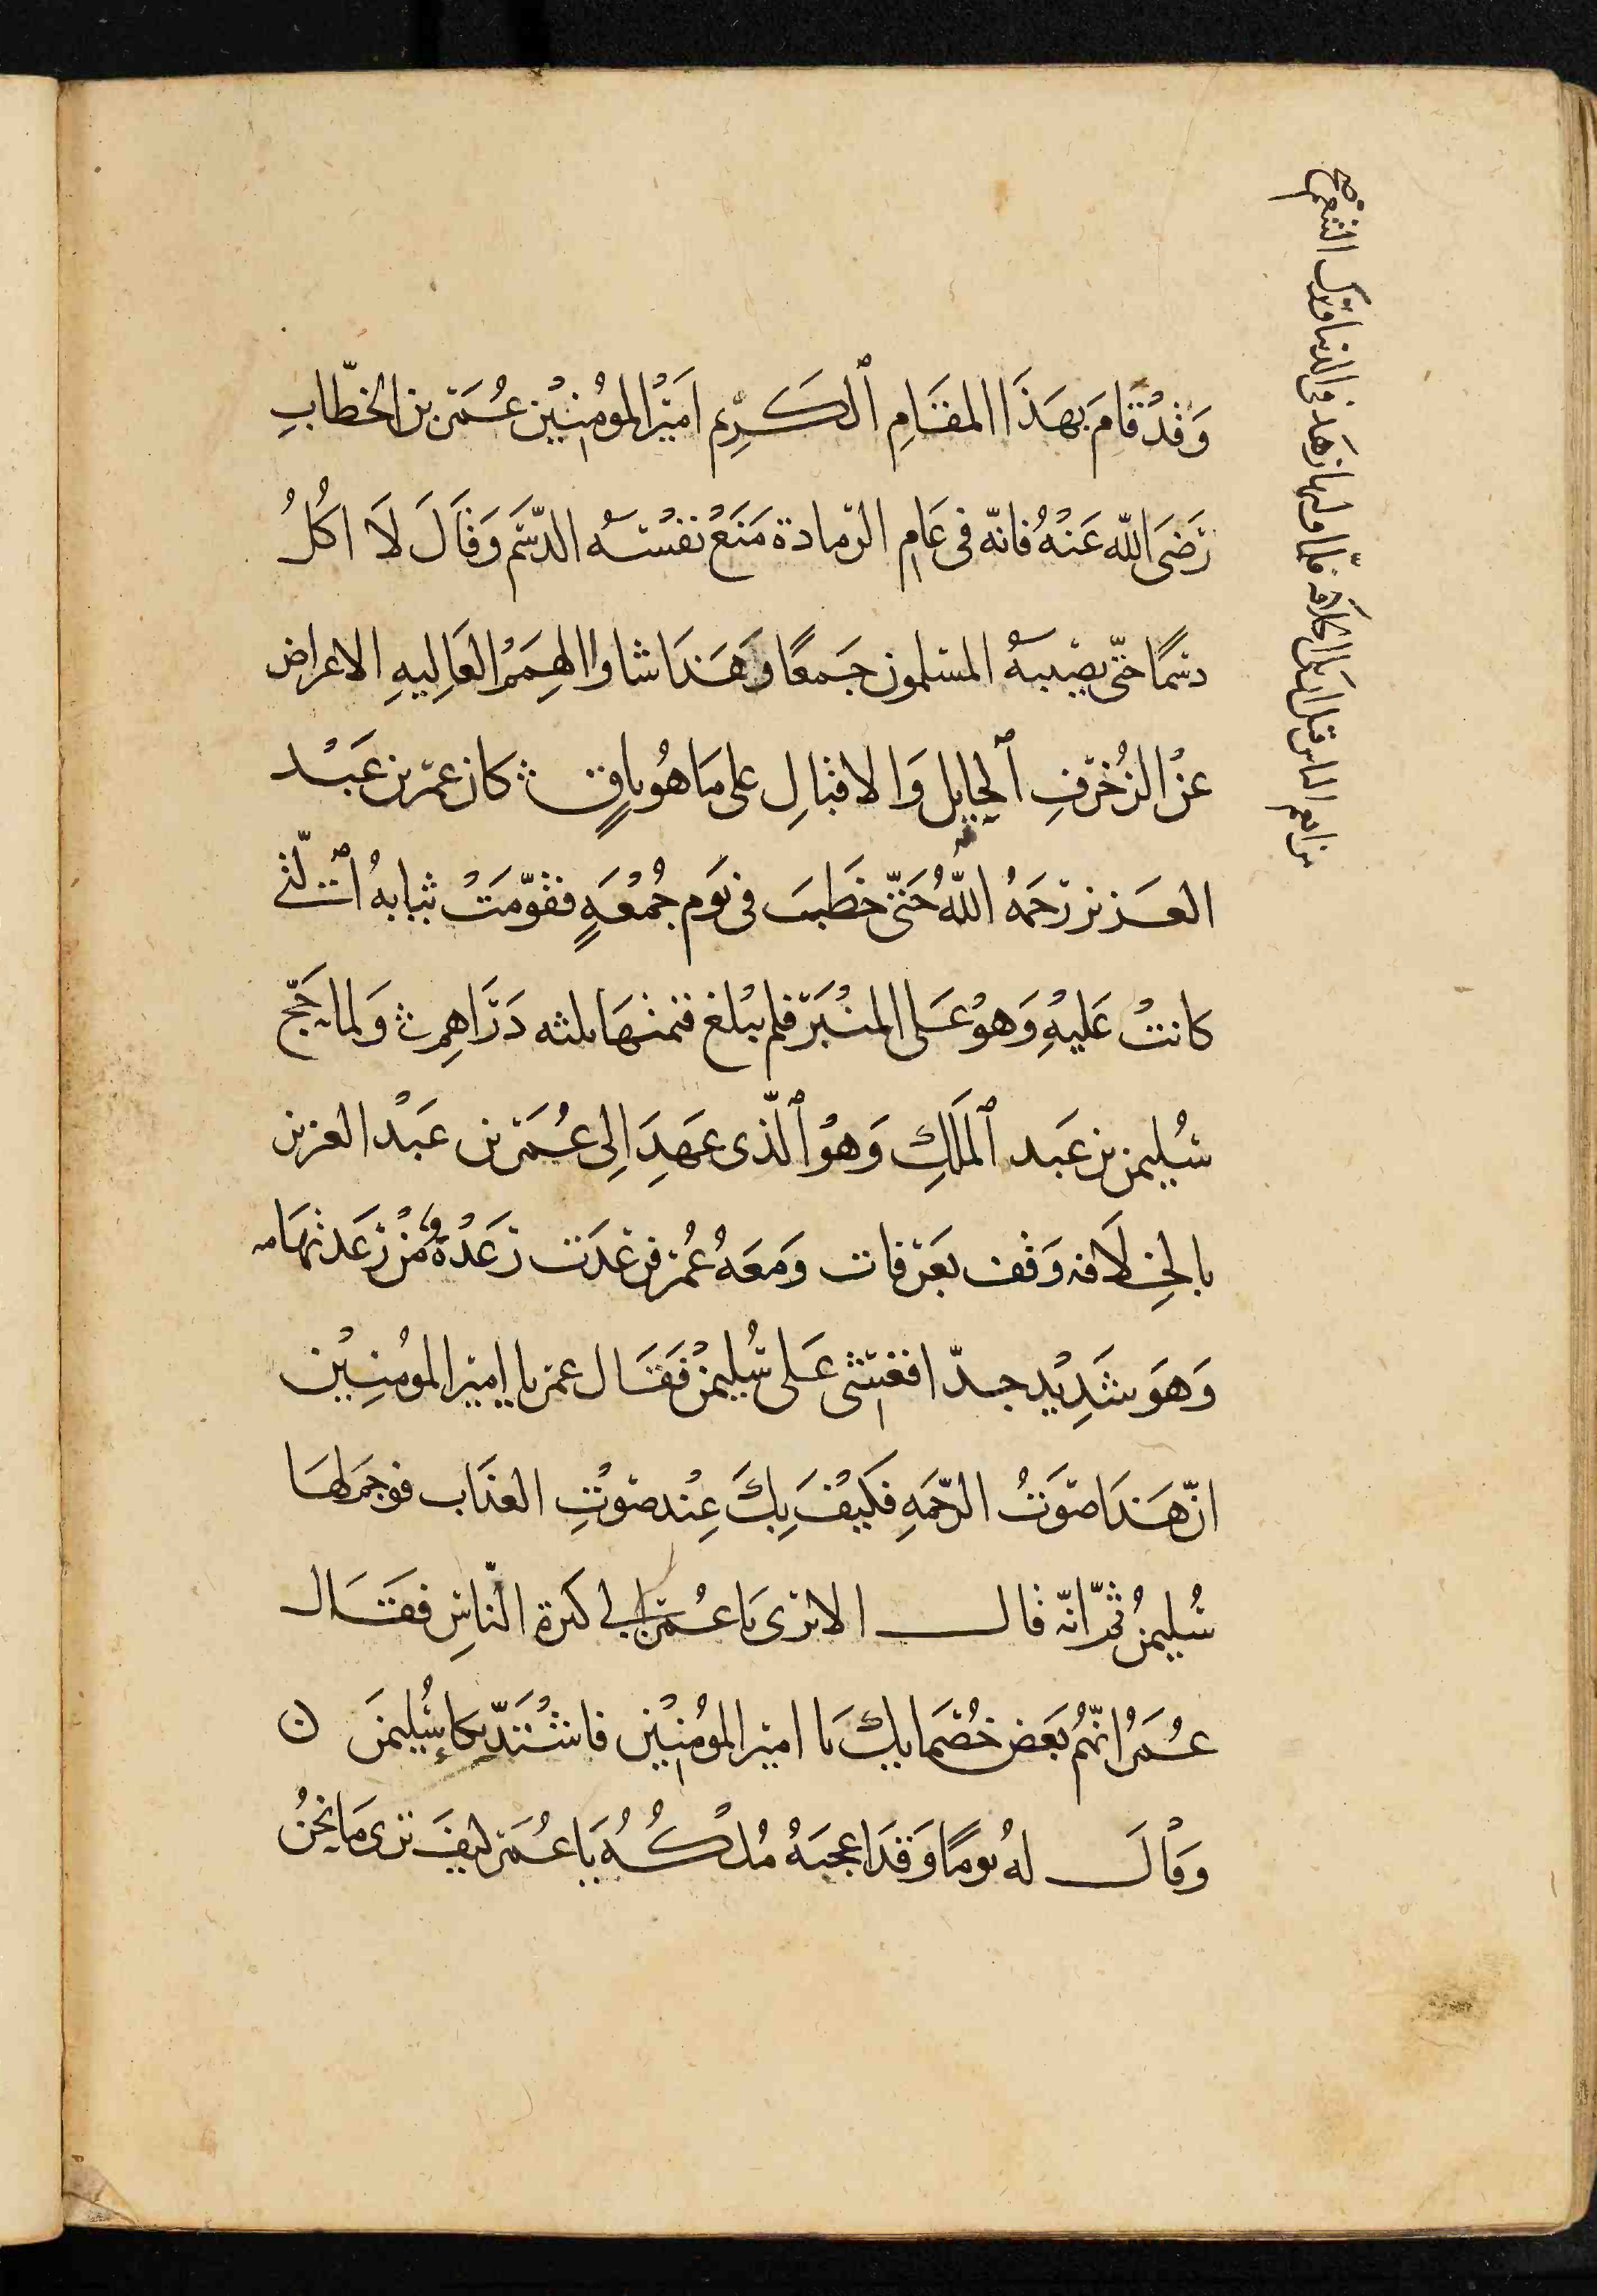 وَقَدْ قَامَ بِهَذَا المقَامِ ٱلكَرِيم امَيْرُ المُومِنِيْن عُمَر بن الخطّابِ
رَضَى اللّه عَنْهُ فانّه فى عَامِ الرّمادة مَنَعَ نفْسَه الدّسَم وَقَالَ لَا اكلُ
دسَمًا حتّى يصيبهُ المسلمون جَمعًا وَهَذَا شاوُ الهِمَمُ العَالِيهِ الاعراض
عن الزُخْرفِ ٱلحايل وَالاقبَالِ على مَا هُو باقٍ ۞ كان عمر بن عَبْد
العَزيز رَحمَهُ اللّهُ حَتّى خَطَبَ فى يَوم جُمُعَهٍ فقوّمَتْ ثيابهُ الّتى
كانتْ عَليهِ وَهوُ عَلى المنْبَر فلم يبْلغ ثمنهَا ثلثه دَرَاهِم ۞ وَلما حَجّ
سُليمن بن عَبد ٱلمَلَكِ وَهوُ ٱلّذى عهَدِ الِى عُمَر بن عَبْد العزيز
بالخِلَافه وَقف بعَرفات وَمَعَهُ عُمر فرعَدَت رَعْدَةٌ مْن رَعَد تهَامه
وَهوَ شَدِيْد جدّا فغشى عَلى سُليمنْ فَقَال عمر يا اميرَ المُومِنِيْن
انّ هَذَا صَوَتُ الرّحمَهِ فكَيفَ بِكَ عِنْد صَوْتِ العذَاب فوجَم لهَا
سُليمنُ ثمّ انّه قال الا ترَى يَا عُمَر الى كثرة النّاسِ فقَال
عُمَرُ انّهُم بَعض خُصَمَايكَ يَا اميَر المُومنِيْن فاشْتَدّ بكا سُليمنَ ۞
وَقالَ لهُ يومًا وَقَدَ اعجبَهُ مُلْكُهُ يَا عُمَر كيفَ ترى مَا نحْنُ
من انعم الناس قبل ان يلى الخلافه فلما وليها زهد فى الدنيا وترك التنعم صح